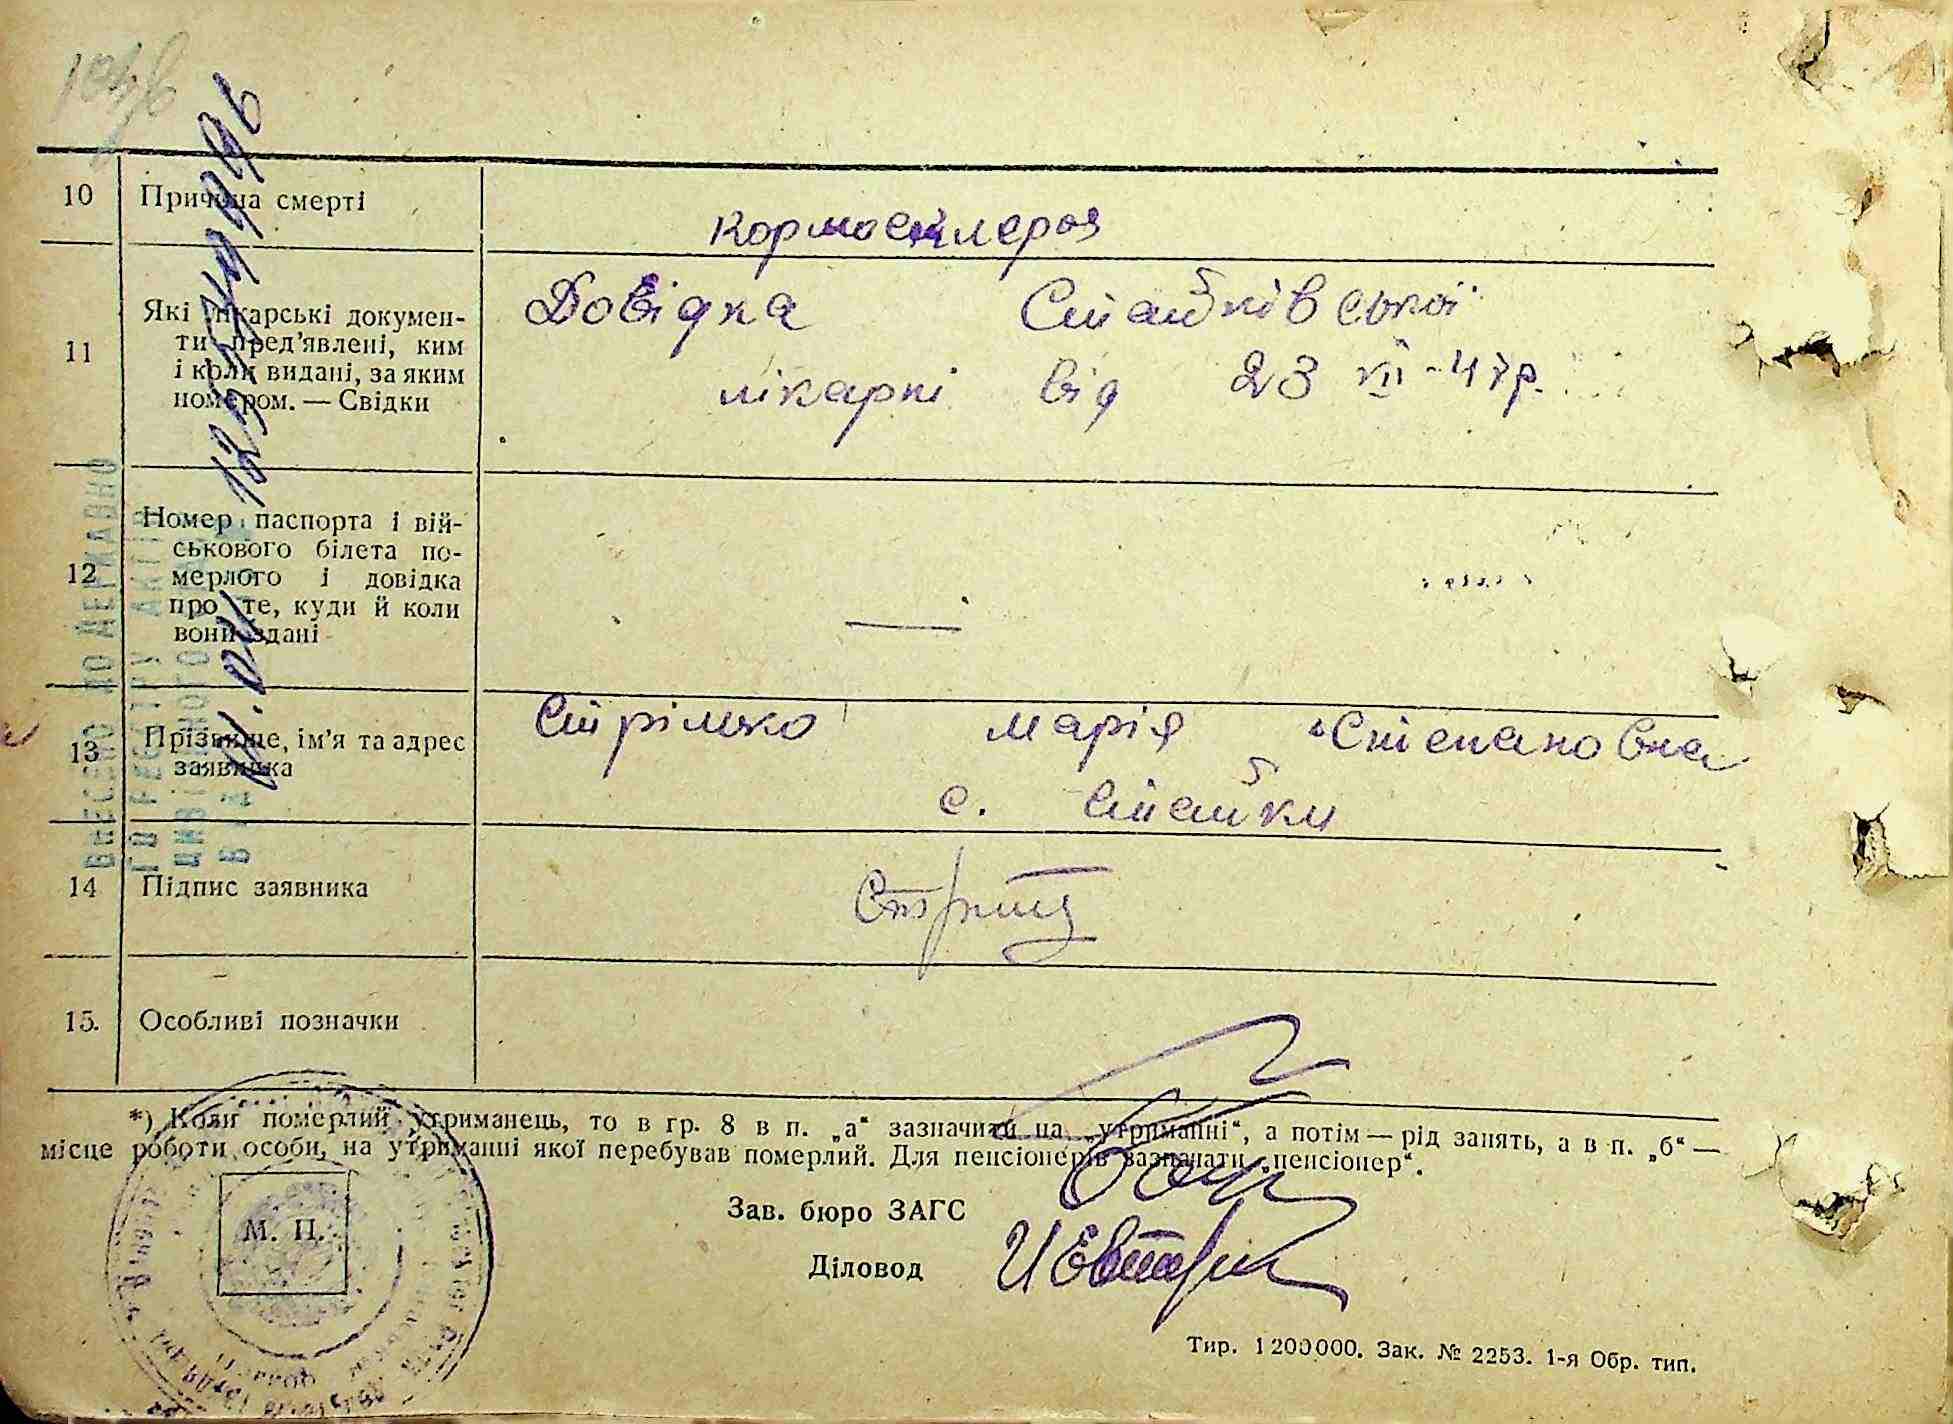 10 Причина смерті
кормосклероз
11 Які лікарські докумен-
ти пред’явлені, ким
і коли видані, за яким
номером. — Свідки
Довідка Стайківської
лікарні від 23 VII - 47р.
12 Номер паспорта і вій-
ськового білета по-
мерлого і довідка
про те, куди й коли
вони здані
—
13 Прізвище, ім’я та адрес
заявника
Стрілько Марія Степановна
с. Стайки
14 Підпис заявника
15. Особливі позначки
*) Коли померлий утриманець, то в гр. 8 в п. „а“ зазначити на „утриманні“, а потім — рід занять, а в п. „б“ —
місце роботи особи, на утриманні якої перебував померлий. Для пенсіонерів зазначати „пенсіонер“.
М. П.
Зав. бюро ЗАГС
Діловод
Тир. 1200000. Зак. № 2253. 1-я Обр. тип.
ВНЕСЕНО ДО ДЕРЖАВНО
ГО РЕЄСТРУ АКТІВ
ЦИВІЛЬНОГО